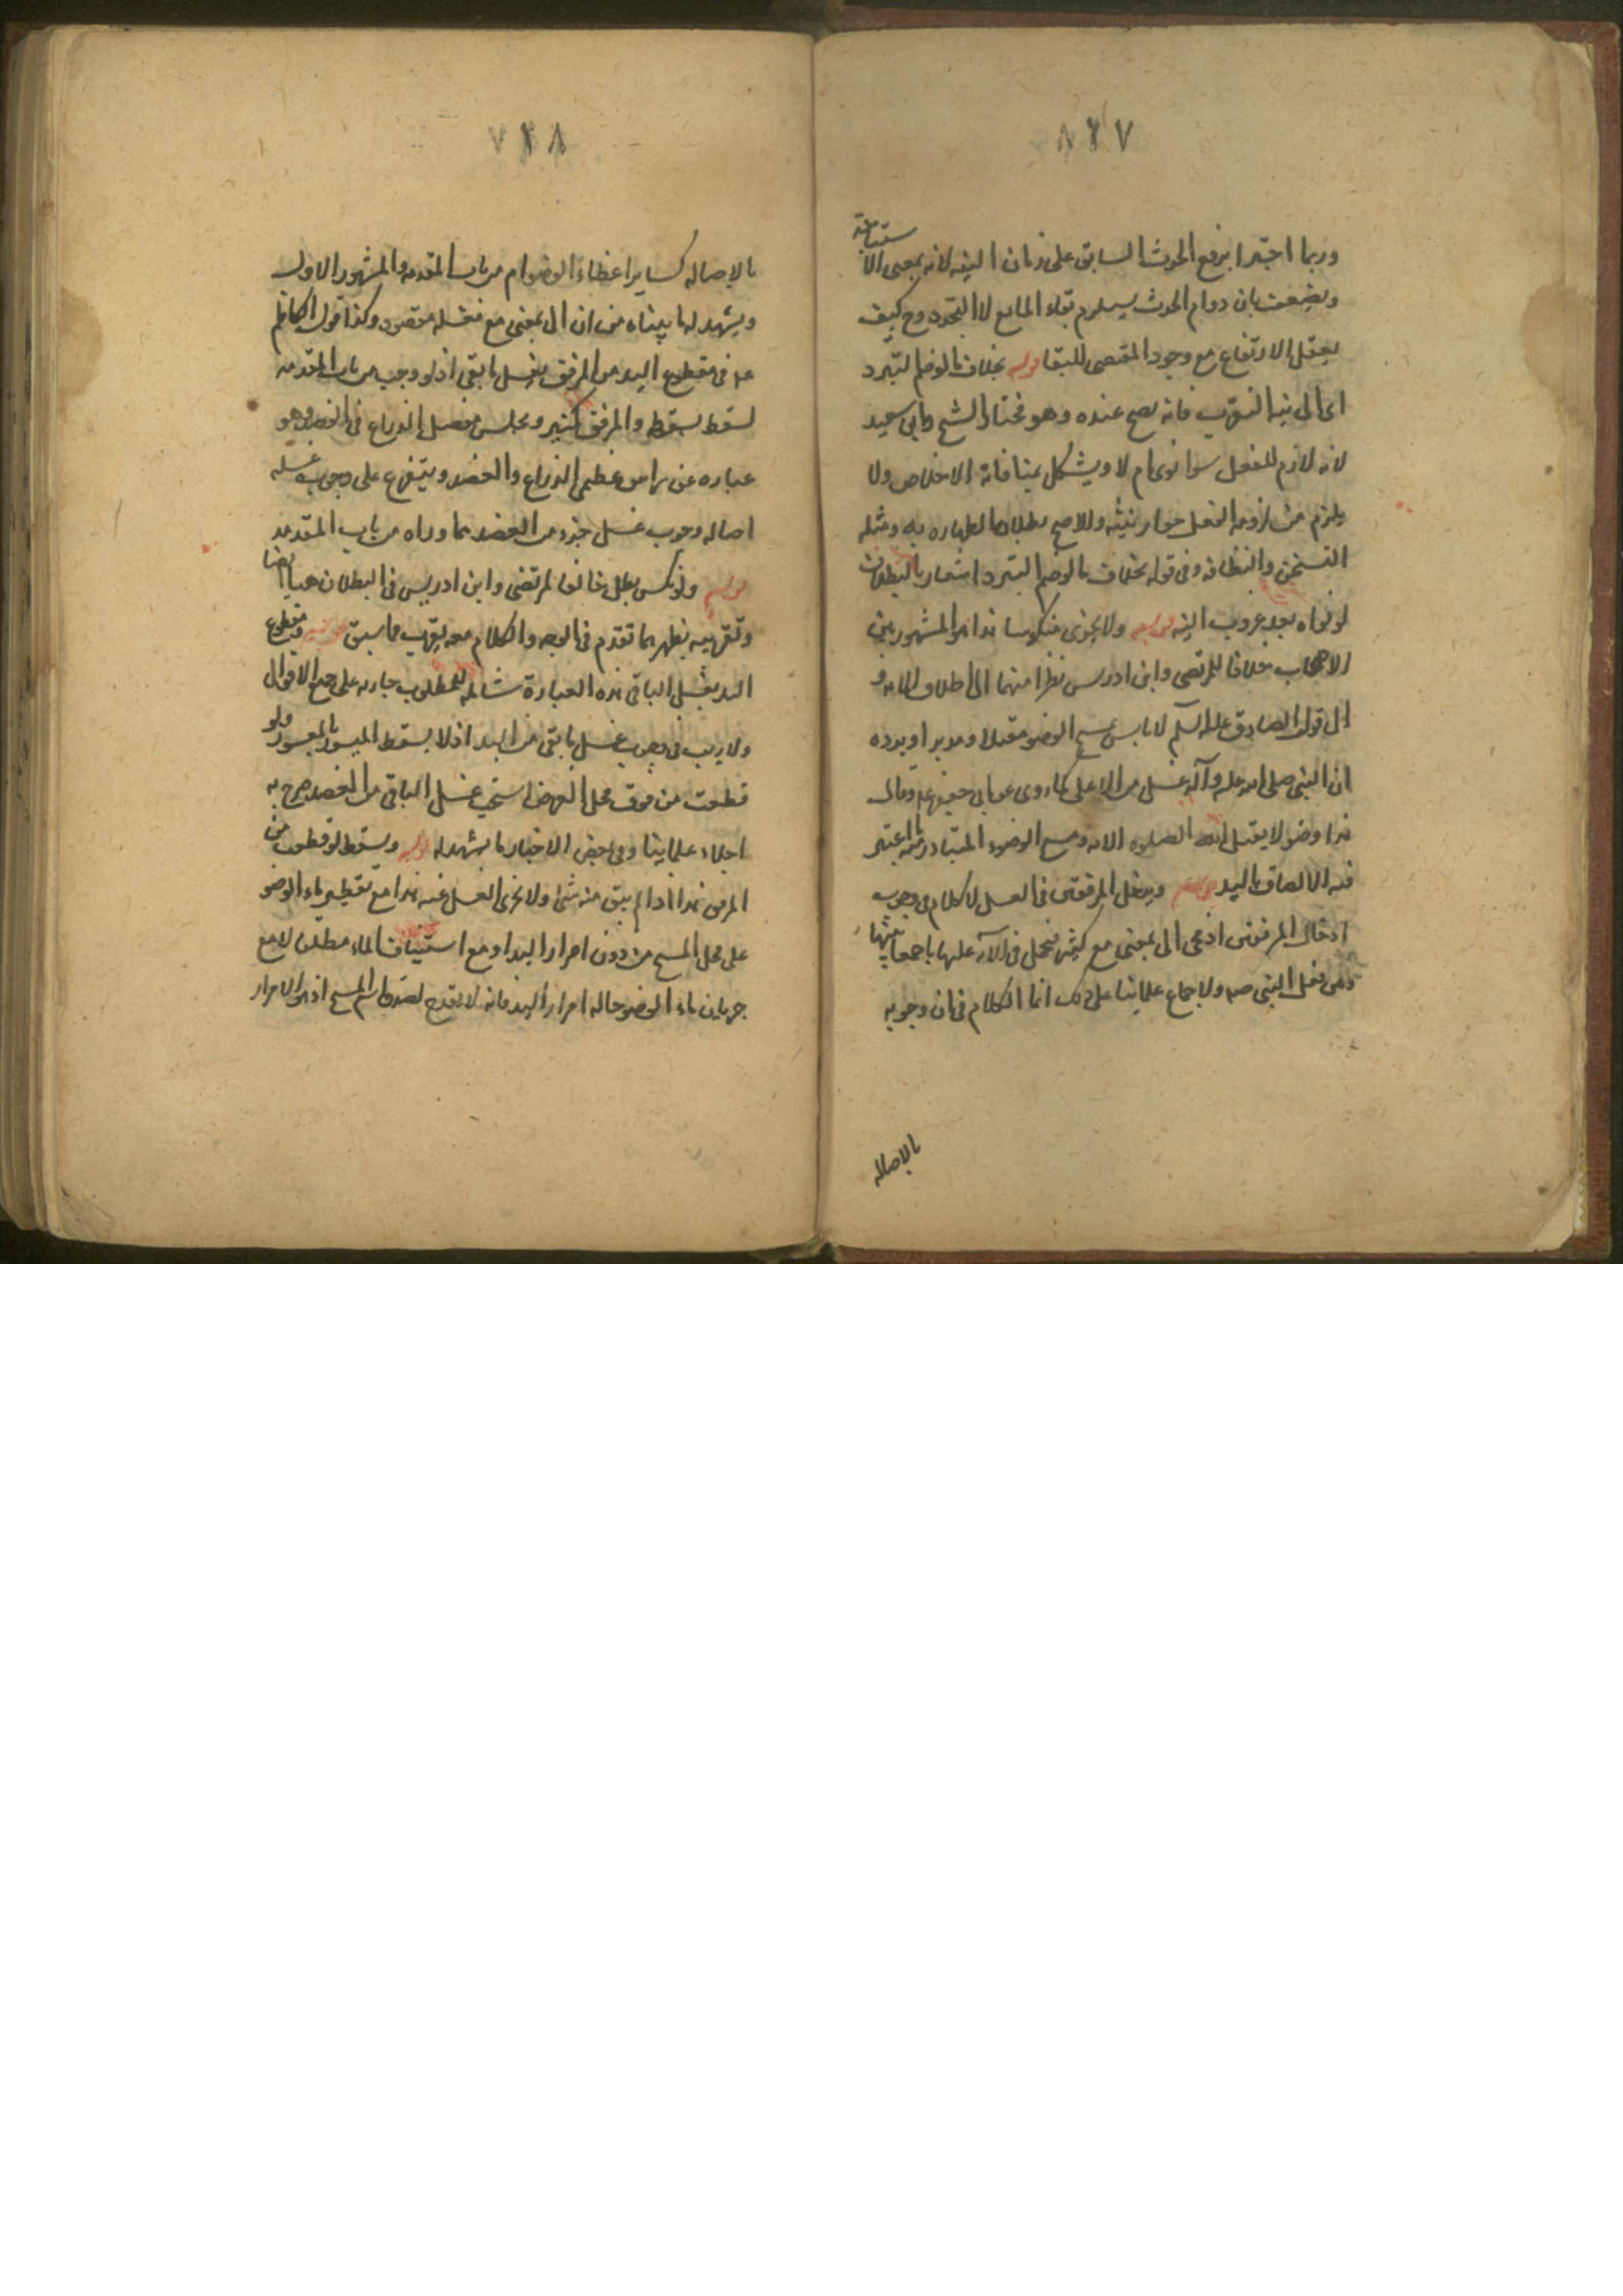 ٨٢٧
وربما اجتزا برفع الحدث السابق على زمان النيه لانه بمعنى الاستباحة
ويضعف بان دوام الحدث يستلزم بقاء المانع لا التجدد وح كيف
يعقل الارتفاع مع وجود المقتضى للبقا قوله بخلاف ما لو ضم التبرد
اى الى نية التقرب فانه يصح عنده وهو مختار الشيخ وابى سعيد
لانه لازم للفعل سوا نوى ام لا ويشكل بمنافاة الاخلاص ولا
يلزم من لزومه الفعل جواز نيته والاصح بطلان الطهارة به ومثله
التسخن والنظافه وفى قوله بخلاف ما لو ضم التبرد اشعار بالبطلان
لو نواه بعد عزوب النيه قوله ولا يجزى منكوسا هذا هو المشهور بين
الاصحاب خلافا للمرتضى وابن ادريس نظرا منهما الى اطلاق الايه و
الى قول الصادق عليه السلم لا باس بمسح الوضو مقبلا ومدبرا ويرده
ان النبى صلى الله عليه وآله غسل من الاعلى كما روى عن ابى جعفر ع وقال
هذا وضو لا يقبل الله الصلوة الا به ومسح الوضوء المتبادر منه
فيه الالصاق باليد قوله ويدخل المرفقين فى الغسل لا كلام فى وجوب
ادخال المرفقين اذ مجى الى بمعنى مع كثير فيحمل فى الآيه عليها
من فعل النبى ص ولاجماع علمائنا على ذلك انما الكلام فى ان وجوبه
بالاصاله
٧٢٨
بالاصاله كساير اعضاء الوضو ام من باب المقدمه والمشهور الاول
ويشهد له ما بيناه من ان الى بمعنى مع فغسله مقصود وكذا قول الكاظم
ع فى مقطوع اليد من المرفق يغسل ما بقى اذ لو وجب من باب المقدمه
لسقط بسقوطه والمرفق كمنبر ومجلس مفصل الذراع فى العضد وهو
عباره عن راس عظمى الذراع والعضد ويتفرع على وجوب غسله
اصاله وجوب غسل جزء من العضد مما وراه من باب المقدمه
قوله ولو نكس بطل خالف المرتضى وابن ادريس فى البطلان هنا ايضا
وتقريبه يظهر بما تقدم فى الوجه والكلام معه يقرب مما سبق قوله ومقطوع
اليد يغسل الباقى هذه العبارة شامله للمطلوب جاريه على جميع الاقوال
ولا ريب فى وجوب غسل ما بقى من اليد اذ لا يسقط الميسور بالمعسور ولو
قطعت من فوق محل الفرض استحب غسل الباقى من العضد صرح به
اجلاء علماينا وفى بعض الاخبار ما يشهد له قوله ويسقط لو قطعت من
المرفق هذا اذا لم يبق منه شئ ولا يجزى الغسل عنه هذا مع تقطير ماء الوضو
على محل المسح من دون امرار اليد او مع استيناف الماء مطلقا لا مع
جريان ماء الوضو حاله امرار اليد فانه لا يقدح لصدق اسم المسح اذ هو الامرار